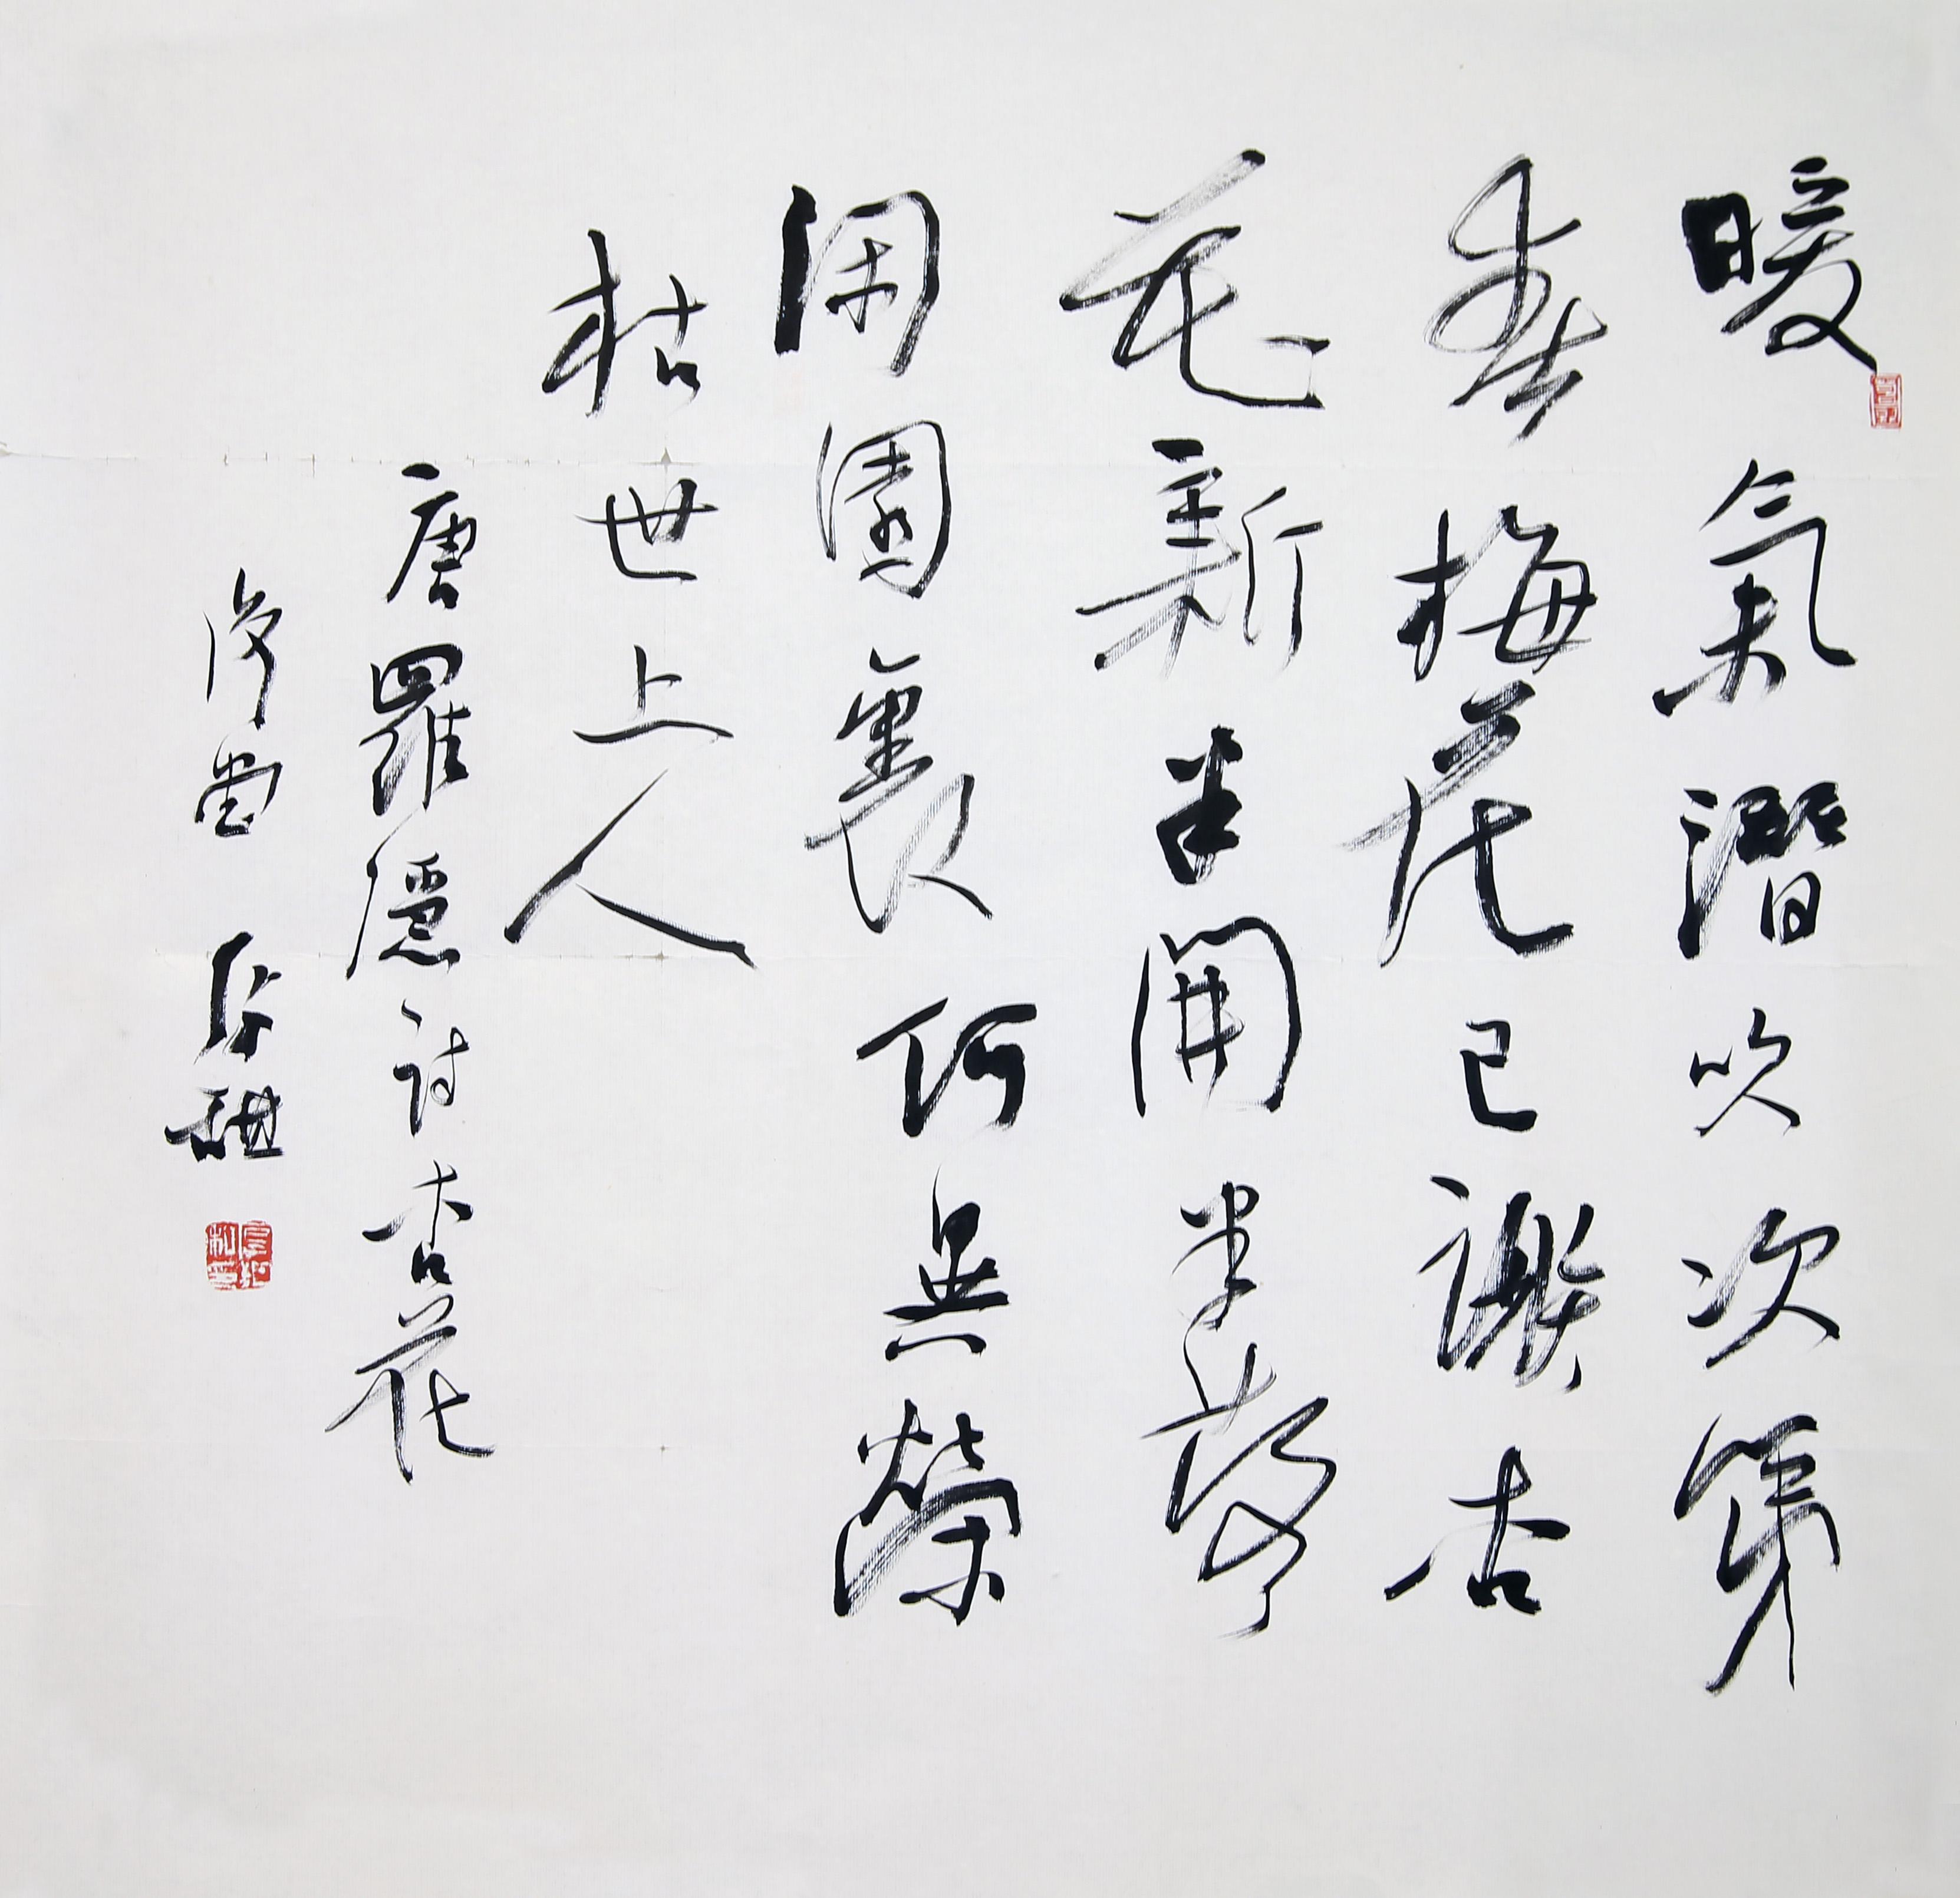 暖氣潛吹次第
春梅花已謝杏
花新半開半落
閑園裏何異榮
枯世上人
唐羅隱詩杏花